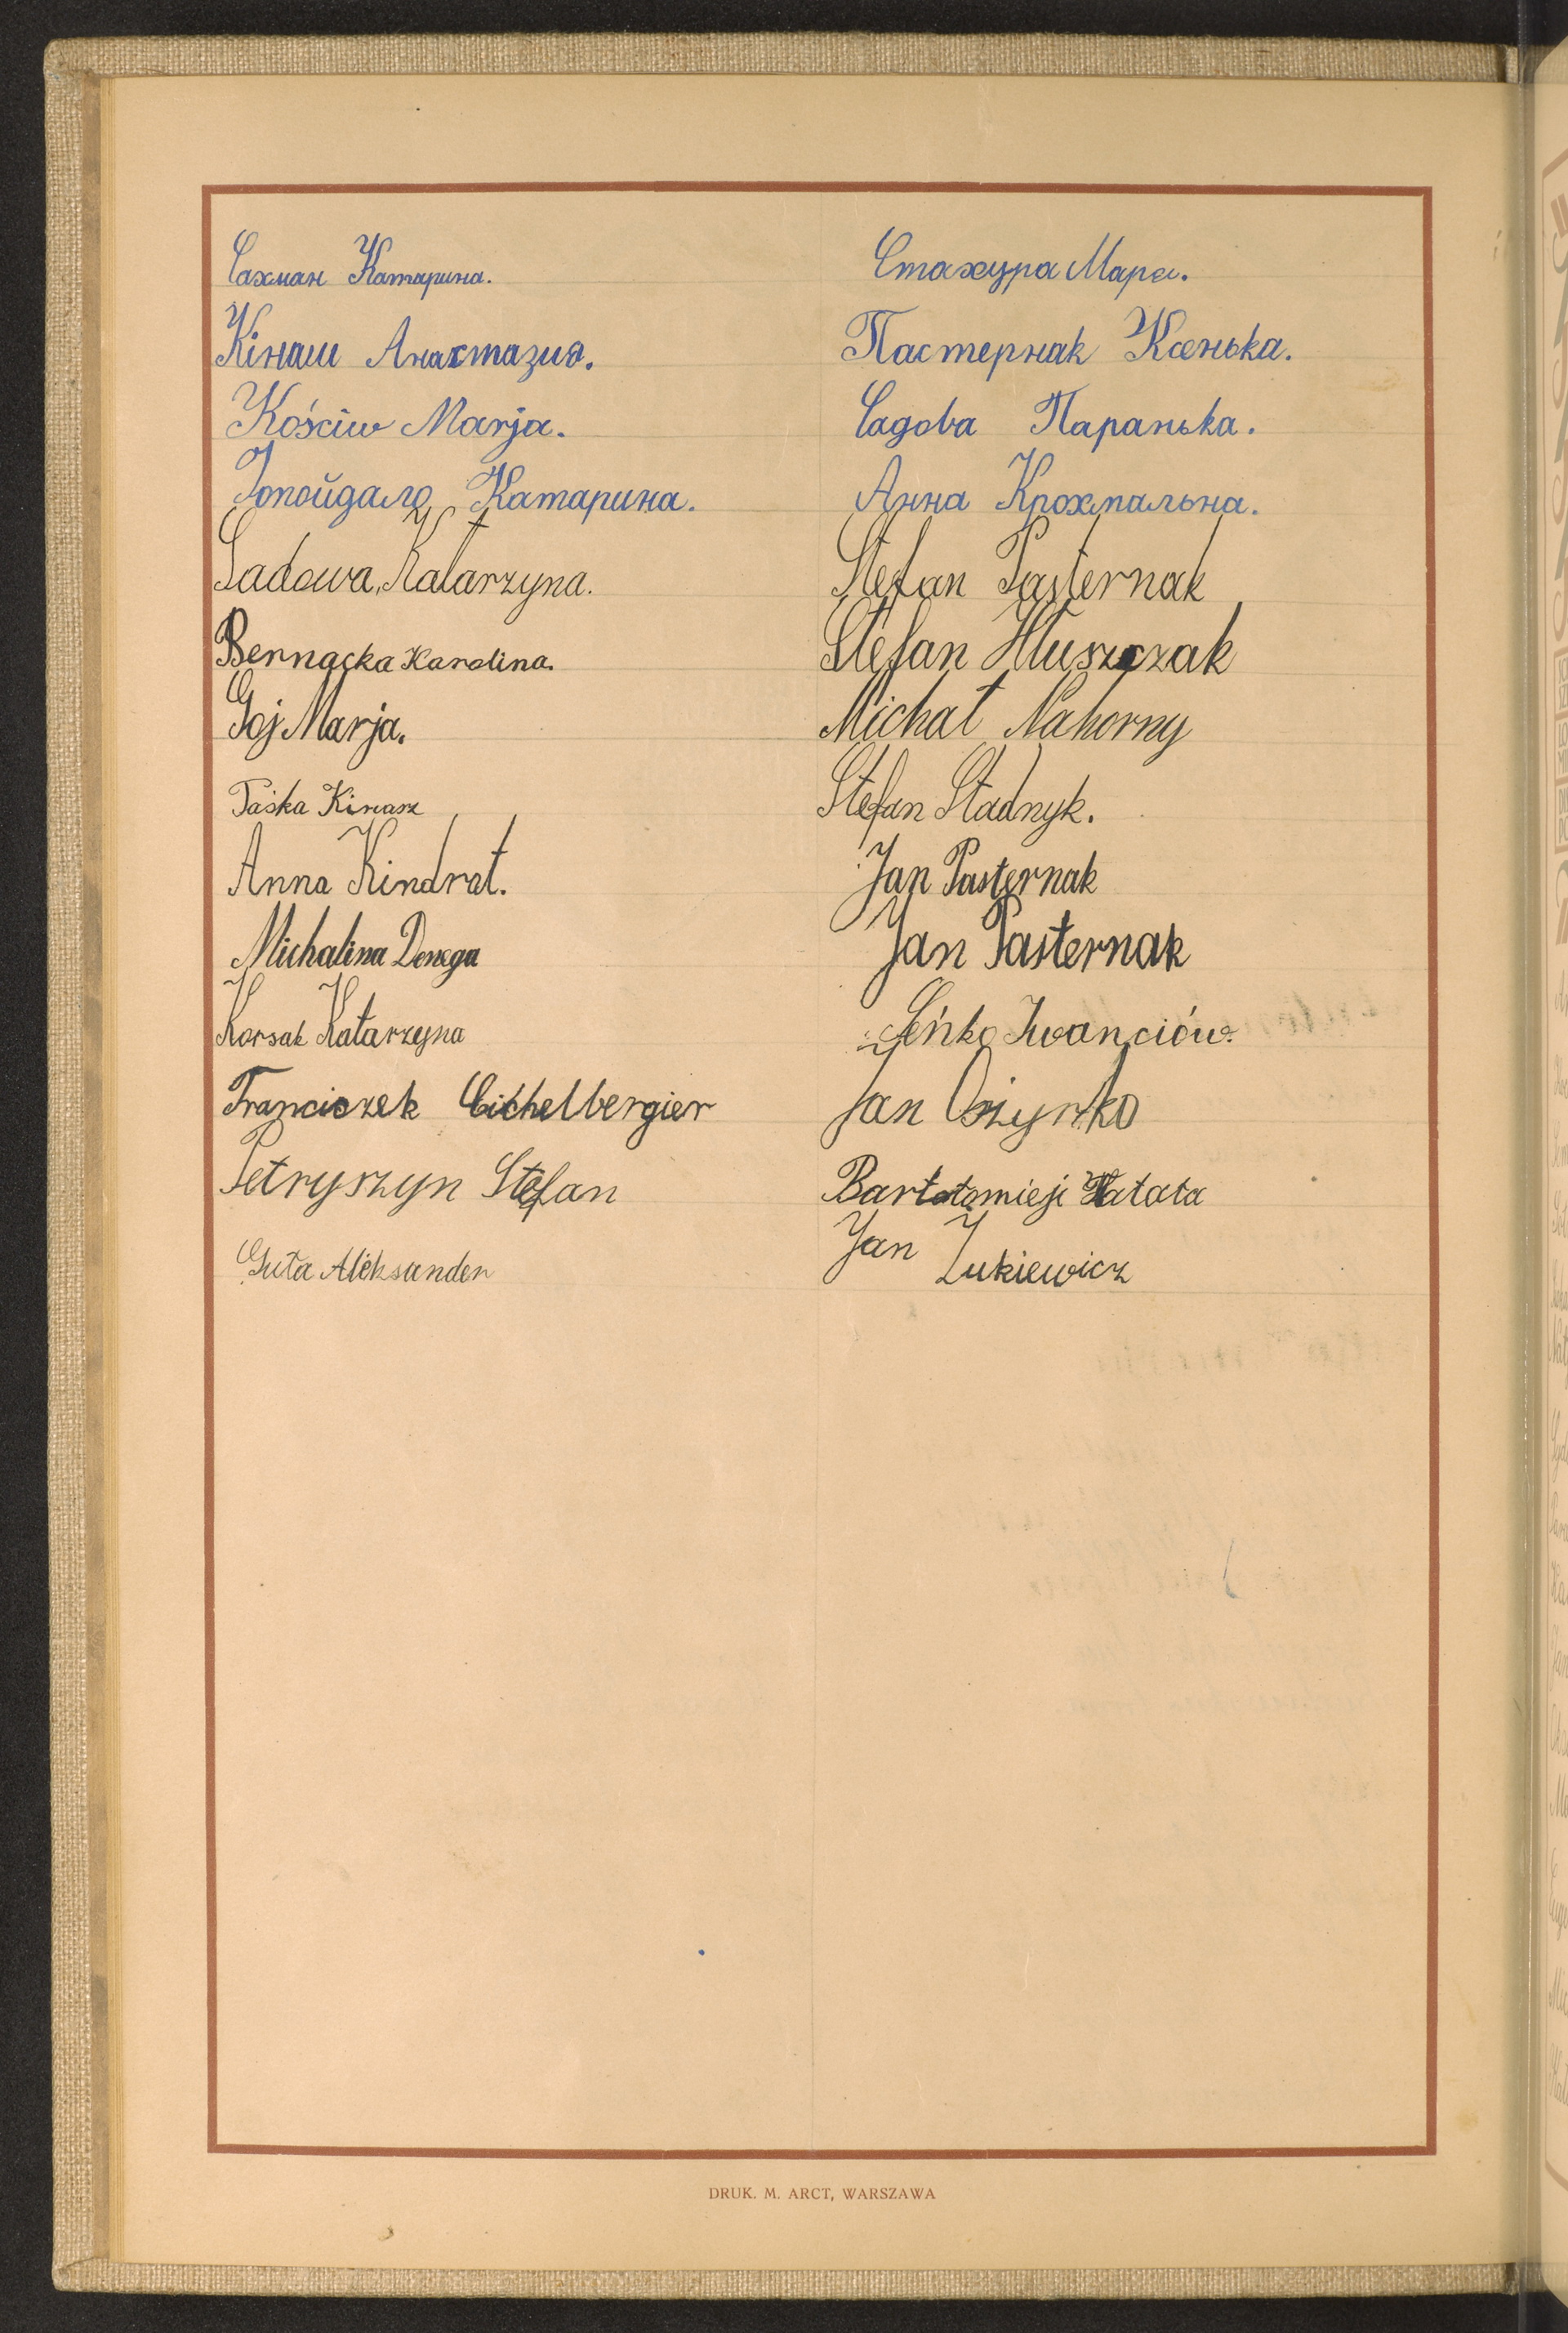 Сахман Катарина.
Кінаш Анастазия.
Kościw Marja.
Катарина.
Sadowa Katarzyna.
Bernacka Karolina.
Goj Marja.
Taśka Kinasz
Anna Kindrat.
Michalina Denega
Korsak Katarzyna
Franciszek Eichelbergier
Petryszyn Stefan
Guta Aleksander
Стахура Мария.
Пастернак Ксенька.
Садова Паранька.
Анна Крохмальна.
Stefan Pasternak
Stefan Hłuszczak
Michał Nahorny
Stefan Stadnyk.
Jan Pasternak
Jan Pasternak
Seńko Iwanciów.
Jan Ożynko
Bartłomiej Hałata
Jan Żukiewicz
DRUK. M. ARCT, WARSZAWA